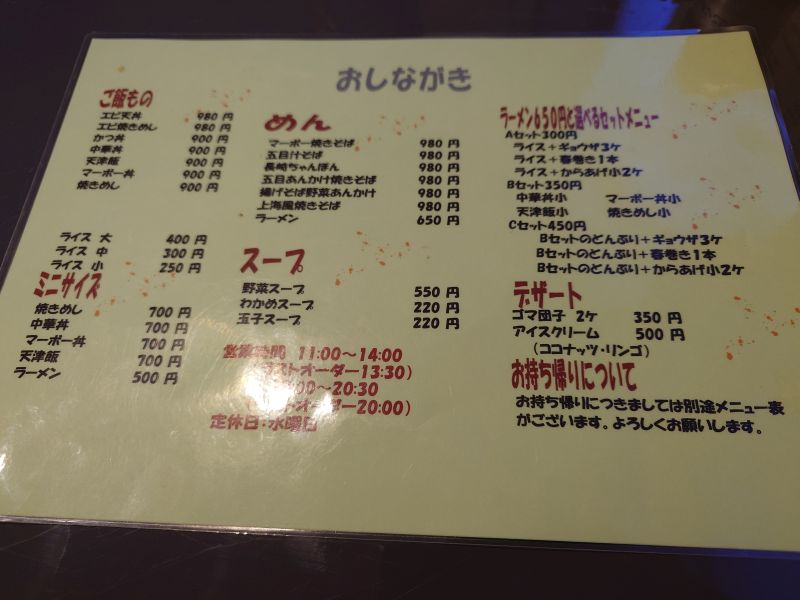 おしながき
ご飯もの
エビ天丼 980 円
エビ焼きめし 980 円
かつ丼 900 円
中華丼 900 円
天津飯 900 円
マーボー丼 900 円
焼きめし 900 円
ライス 大 400 円
ライス 中 300 円
ライス 小 250 円
ミニサイズ
焼きめし 700 円
中華丼 700 円
マーボー丼 700 円
天津飯 700 円
ラーメン 500 円
めん
マーボー焼きそば 980 円
五目汁そば 980 円
長崎ちゃんぽん 980 円
五目あんかけ焼きそば 980 円
揚げそば野菜あんかけ 980 円
上海風焼きそば 980 円
ラーメン 650 円
スープ
野菜スープ 550 円
わかめスープ 220 円
玉子スープ 220 円
営業時間 11:00～14:00
ストオーダー13:30)
00～20:30
オーダー20:00)
定休日:水曜日
ラーメン650円と選べるセットメニュー
Aセット300円
ライス+ギョウザ3ケ
ライス+春巻き1本
ライス+からあげ小2ケ
Bセット350円
中華丼小 マーボー丼小
天津飯小 焼きめし小
Cセット450円
Bセットのどんぶり+ギョウザ3ケ
Bセットのどんぶり+春巻き1本
Bセットのどんぶり+からあげ小2ケ
デザート
ゴマ団子 2ケ 350 円
アイスクリーム 500 円
(ココナッツ・リンゴ)
お持ち帰りについて
お持ち帰りにつきましては別途メニュー表
がございます。よろしくお願いします。